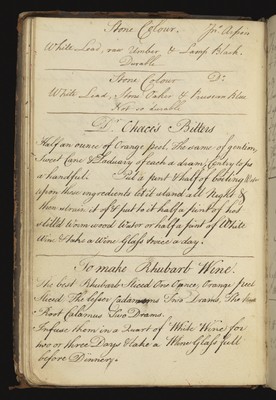 Stone Colour. Jno. Aspin
White Lead, raw Umber, & Lamp Black.
Durable
Stone Colour Do.
White Lead, Stone Oaker & Prussian Blue
Not so durable
Dr. Chace's Bitters
Half an ounce of Orange peel. The same of gentian,
Sweet Cane & of each a dram; Centry tops
a handful. a pint & half of boiling Water
upon these ingredients let it stand all Night &
then strain it off & put to it half a pint of hot
still'd wormwood Water or half a pint of White
Wine & take a Wine Glass twice a day.
To make Rhubarb Wine.
The best Rhubarb Sliced One Ounce, Orange peel
Sliced The lesser Cadamoms Two Drams, The
Root Calamus Two Drams.
Infuse them in a Quart of White Wine for
two or three Days & take a Wine Glass full
before Dinner.